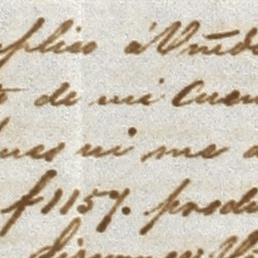 plico á Vmd
de mi Cuen
ues ni me
f 1157. produ